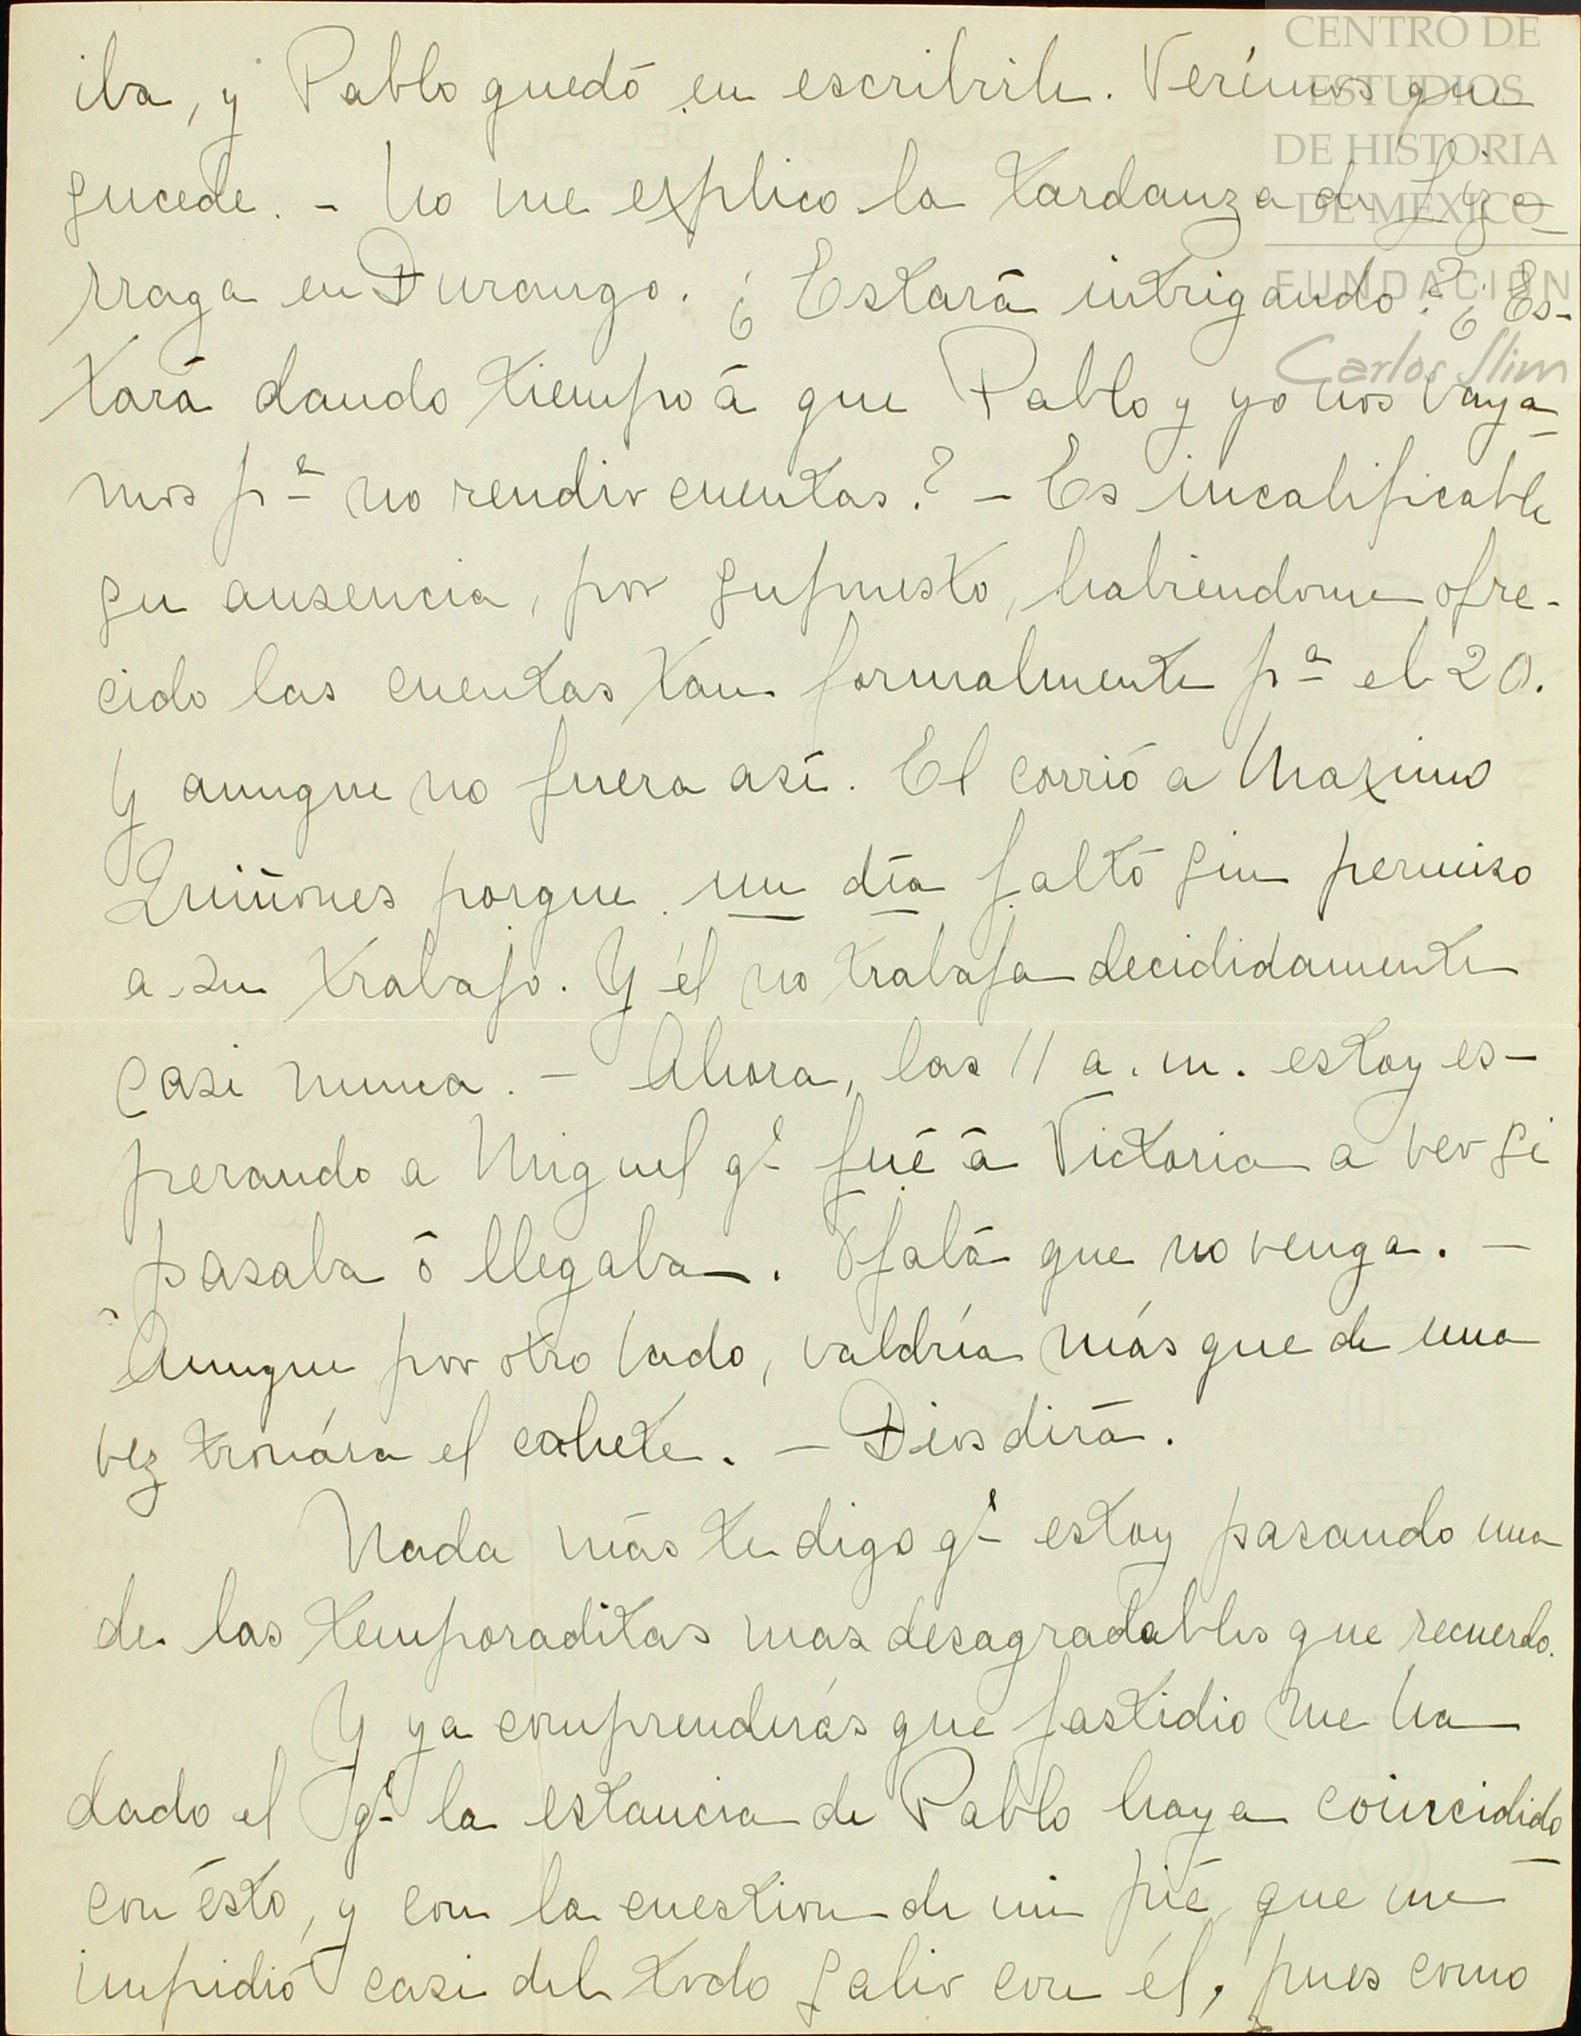 iba, y Pablo quedó en escribirle. Verémos que
sucede. - No me explico la tardanza de Liza-
rraga en Durango. ¿Estará intrigando? ¿Es-
tará dando tiempo á que Pablo y yo nos vaya-
mos pª no rendir cuentas? - Es incalificable
su ausencia, por supuesto, habiendome ofre-
cido las cuentas tan formalmente pª el 20.
Y aunque no fuera así. El corrió a Maximo
Quiñones porque un día faltó sin permiso
a su trabajo. Y él no trabaja decididamente
casi nunca. - Ahora, las 11 a.m. estoy es-
perando a Miguel qᵉ fué á Victoria a ver si
pasaba ó llegaba. Ojalá que no venga. -
Aunque por otro lado, valdría más que de una
vez tronára el cohete. - Dios dirá.
Nada más te digo qᵉ estoy pasando una
de las temporaditas mas desagradables que recuerdo.
Y ya comprenderás que fastidio me ha
dado el qᵉ la estancia de Pablo haya coincidido
con ésto, y con la cuestion de mi pié que me
impidió casi del todo salir con él, pues como
CENTRO DE
ESTUDIOS
DE HISTORIA
DE MÉXICO
FUNDACIÓN
Carlos Slim